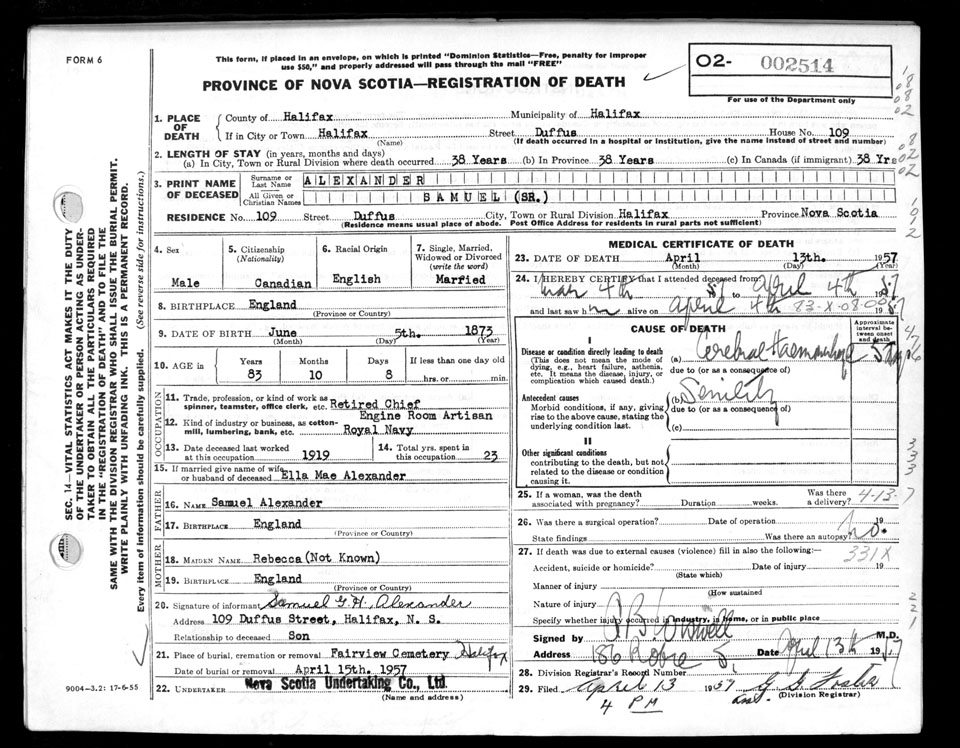 FORM 6
This form, if placed in an envelope, on which is printed "Dominion Statistics—Free, penalty for improper
use $50," and properly addressed will pass through the mail "FREE"
PROVINCE OF NOVA SCOTIA—REGISTRATION OF DEATH
02- 002514
For use of the Department only
1. PLACE OF DEATH
County of Halifax Municipality of Halifax
If in City or Town Halifax Street Duffus House No. 109
(Name) (If death occurred in a hospital or institution, give the name instead of street and number)
2. LENGTH OF STAY (in years, months and days)
(a) In City, Town or Rural Division where death occurred 38 Years (b) In Province 38 Years (c) In Canada (if immigrant) 38 Yrs
3. PRINT NAME OF DECEASED
Surname or Last Name ALEXANDER
All Given or Christian Names SAMUEL (SR.)
RESIDENCE No. 109 Street Duffus City, Town or Rural Division Halifax Province Nova Scotia
(Residence means usual place of abode. Post Office Address for residents in rural parts not sufficient)
4. Sex
Male
5. Citizenship
(Nationality)
Canadian
6. Racial Origin
English
7. Single, Married,
Widowed or Divorced
(write the word)
Married
8. BIRTHPLACE England
(Province or Country)
9. DATE OF BIRTH June 5th. 1873
(Month) (Day) (Year)
10. AGE in
Years Months Days If less than one day old
83 10 8 hrs. or min.
OCCUPATION
11. Trade, profession, or kind of work as
spinner, teamster, office clerk, etc. Retired Chief
Engine Room Artisan
12. Kind of industry or business, as cotton-
mill, lumbering, bank, etc. Royal Navy
13. Date deceased last worked
at this occupation 1919
14. Total yrs. spent in
this occupation 23
15. If married give name of wife
or husband of deceased Ella Mae Alexander
FATHER
16. NAME Samuel Alexander
17. BIRTHPLACE England
(Province or Country)
MOTHER
18. MAIDEN NAME Rebecca (Not Known)
19. BIRTHPLACE England
(Province or Country)
20. Signature of informant Samuel G. H. Alexander
Address 109 Duffus Street, Halifax, N. S.
Relationship to deceased Son
21. Place of burial, cremation or removal Fairview Cemetery Halifax
Date of burial or removal April 15th. 1957
22. UNDERTAKER Nova Scotia Undertaking Co., Ltd.
(Name and address)
MEDICAL CERTIFICATE OF DEATH
23. DATE OF DEATH April 13th. 1957
(Month) (Day) (Year)
24. I HEREBY CERTIFY that I attended deceased from
Mar 4th 57 to April 4th 1957
and last saw him alive on April 4th 1957
83-X-08-00
CAUSE OF DEATH
Approximate interval between onset and death
I
Disease or condition directly leading to death
(This does not mean the mode of
dying, e.g., heart failure, asthenia,
etc. It means the disease, injury, or
complication which caused death.)
(a) Cerebral Haemorrhage 5 days
due to (or as a consequence of)
Antecedent causes
Morbid conditions, if any, giving
rise to the above cause, stating the
underlying condition last.
(b) Senility
due to (or as a consequence of)
(c)
II
Other significant conditions
contributing to the death, but not
related to the disease or condition
causing it.
25. If a woman, was the death
associated with pregnancy? Duration weeks. Was there
a delivery? 4-13-7
26. Was there a surgical operation? Date of operation 19
State findings Was there an autopsy? no.
27. If death was due to external causes (violence) fill in also the following:—
331X
Accident, suicide or homicide? Date of injury 19
(State which)
Manner of injury
(How sustained
Nature of injury
Specify whether injury occurred in industry, in home, or in public place
Signed by M.D.
Address 186 Date April 13th 1957
28. Division Registrar's Record Number
29. Filed April 13 1957 G G Foster
4 PM Asst. (Division Registrar)
SEC. 14—VITAL STATISTICS ACT MAKES IT THE DUTY
OF THE UNDERTAKER OR PERSON ACTING AS UNDER-
TAKER TO OBTAIN ALL THE PARTICULARS REQUIRED
IN THE "REGISTRATION OF DEATH" AND TO FILE THE
SAME WITH THE DIVISION REGISTRAR WHO SHALL ISSUE THE BURIAL PERMIT.
WRITE PLAINLY WITH UNFADING INK. THIS IS A PERMANENT RECORD.
Every item of information should be carefully supplied. (See reverse side for instructions.)
9004-3.2: 17-6-55